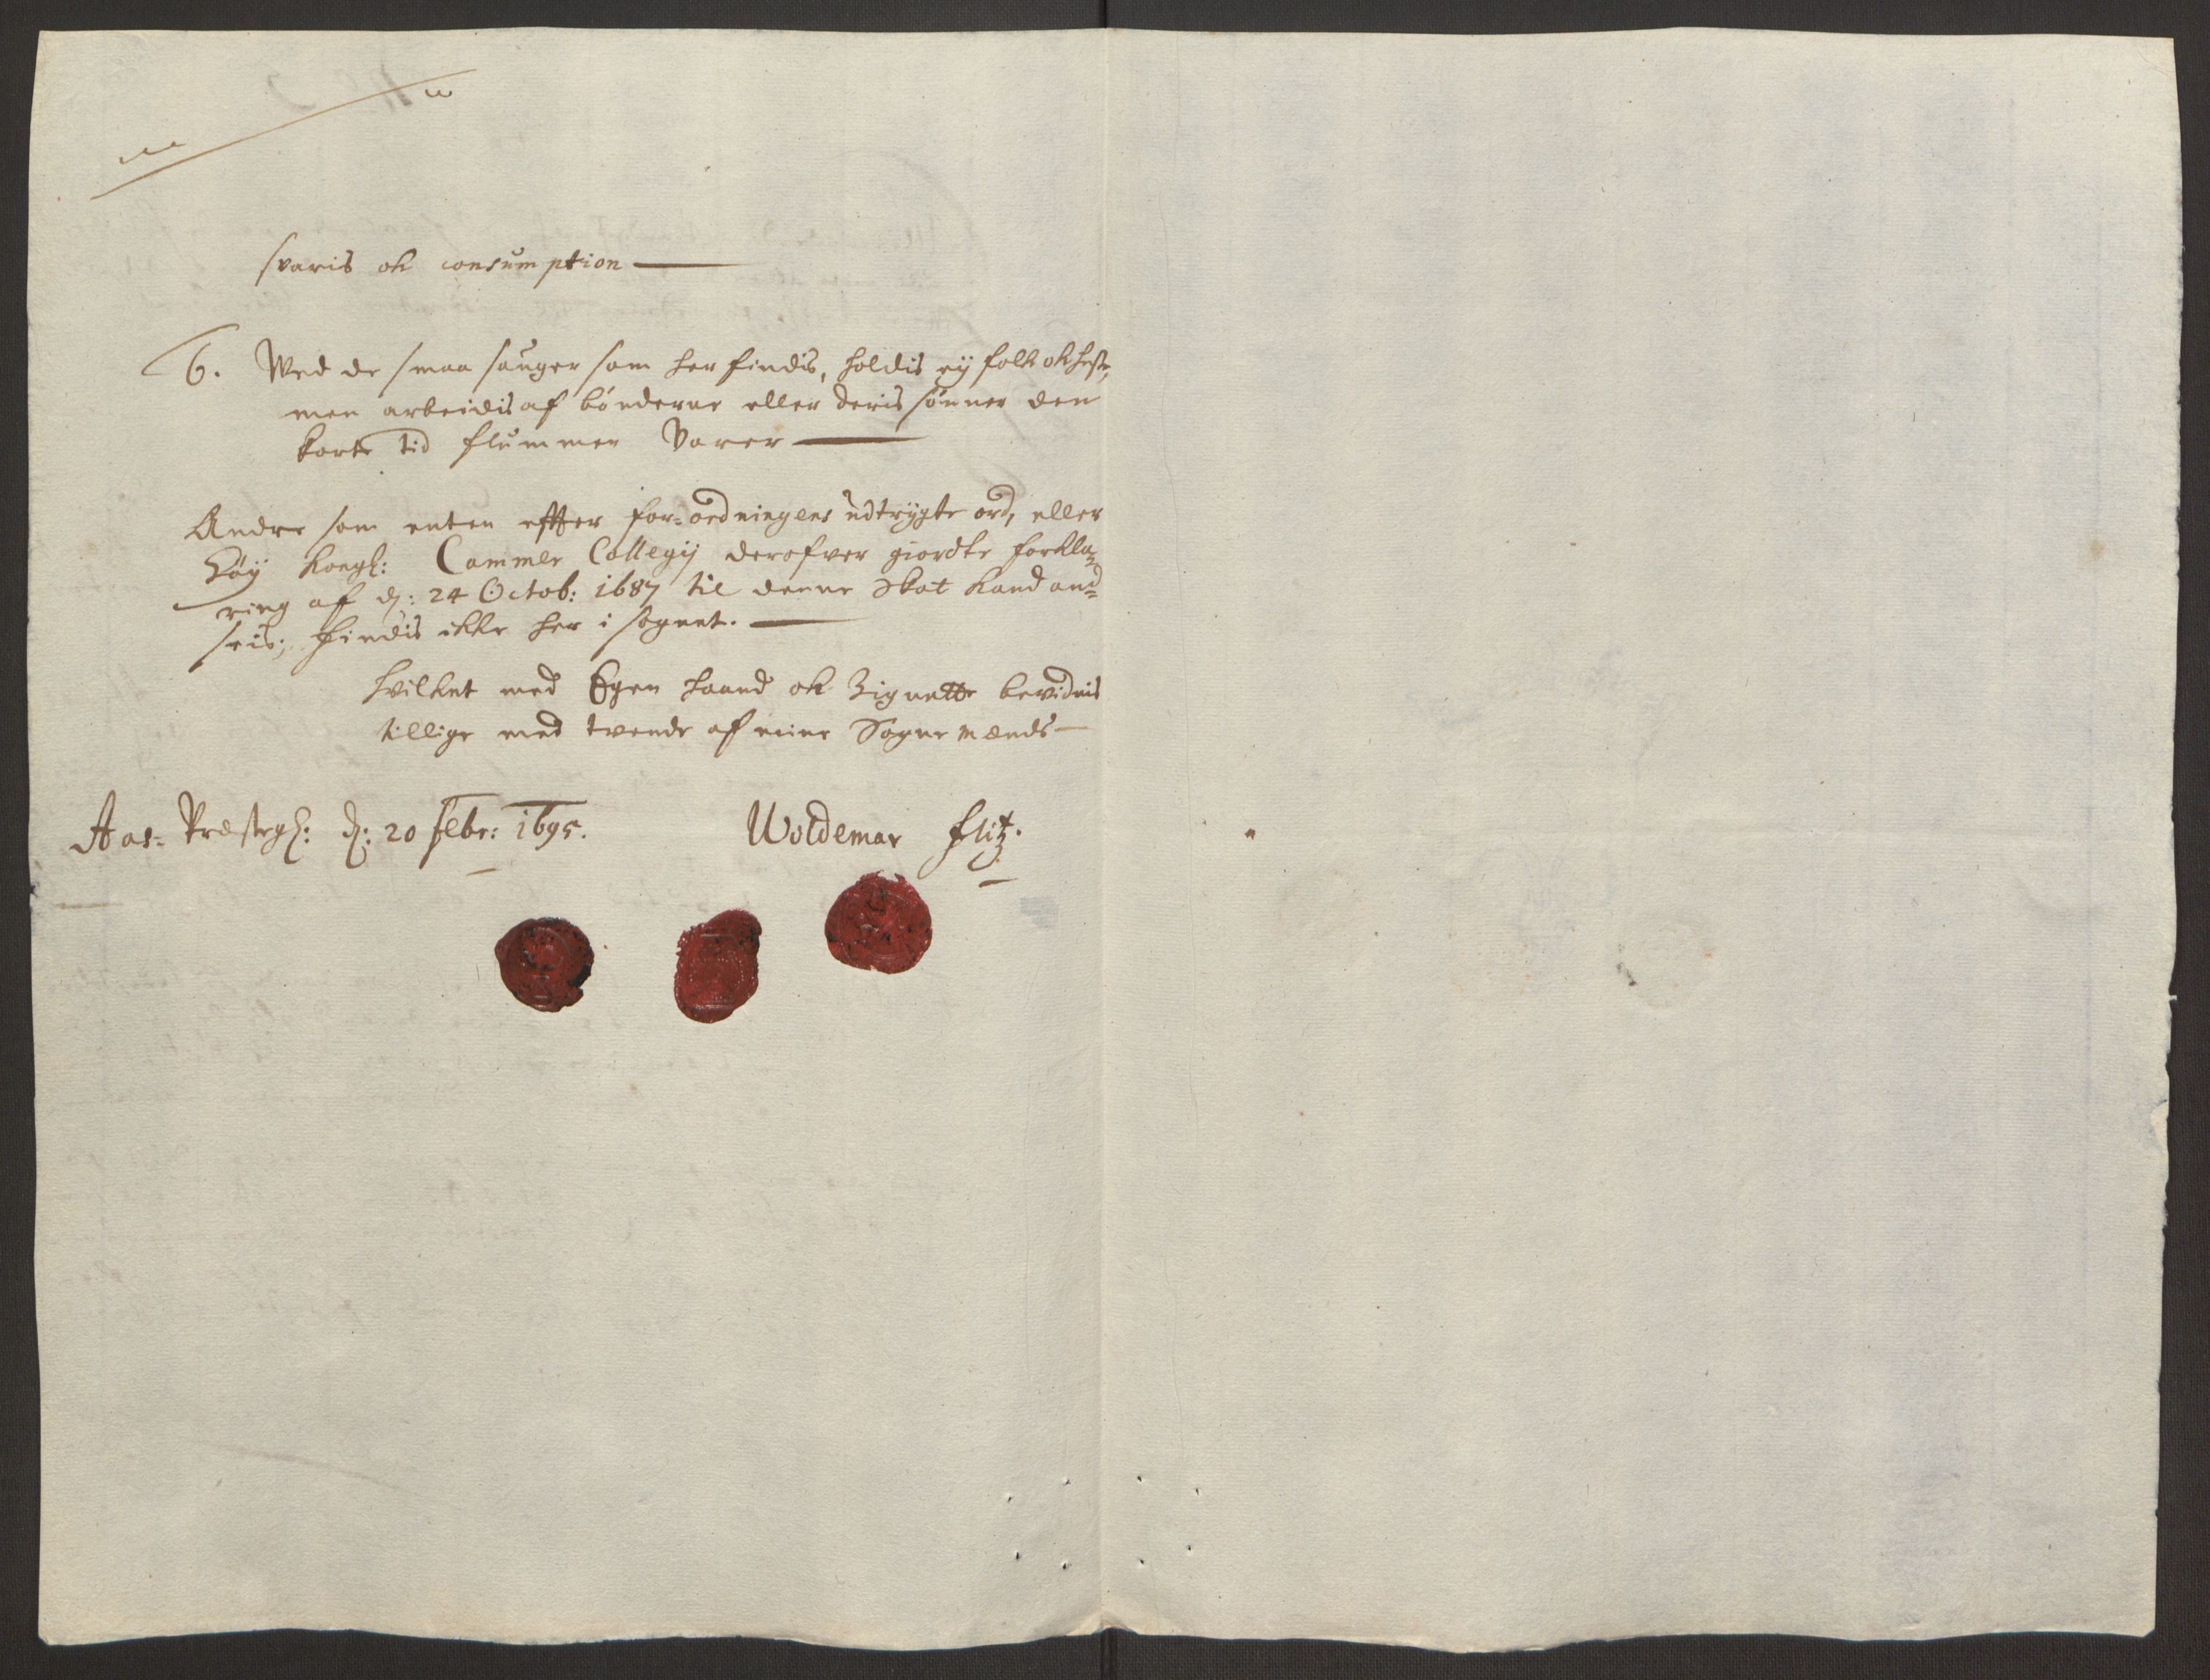 svaris ok consumption
6. Wed de smaa sauger som her findis, holdis ey folk ok heste,
men arbeidis af bønderne eller deris sønner den
korte tid flummen varer
Andre som enten effter for=ordningens udtrygte ord, eller
Høy Kongl: Cammer Collegij derofver giordte forkla=
ring af d: 24 Octob: 1687 til denne Skat kand an=
seis; findis ikke her i sognet.
Hvilket med Egen haand ok Zignette bevidnis
tillige med tvende af mine Sognemænds
Aas=Præstegl: d: 20 febr: 1695. Woldemar flitz.